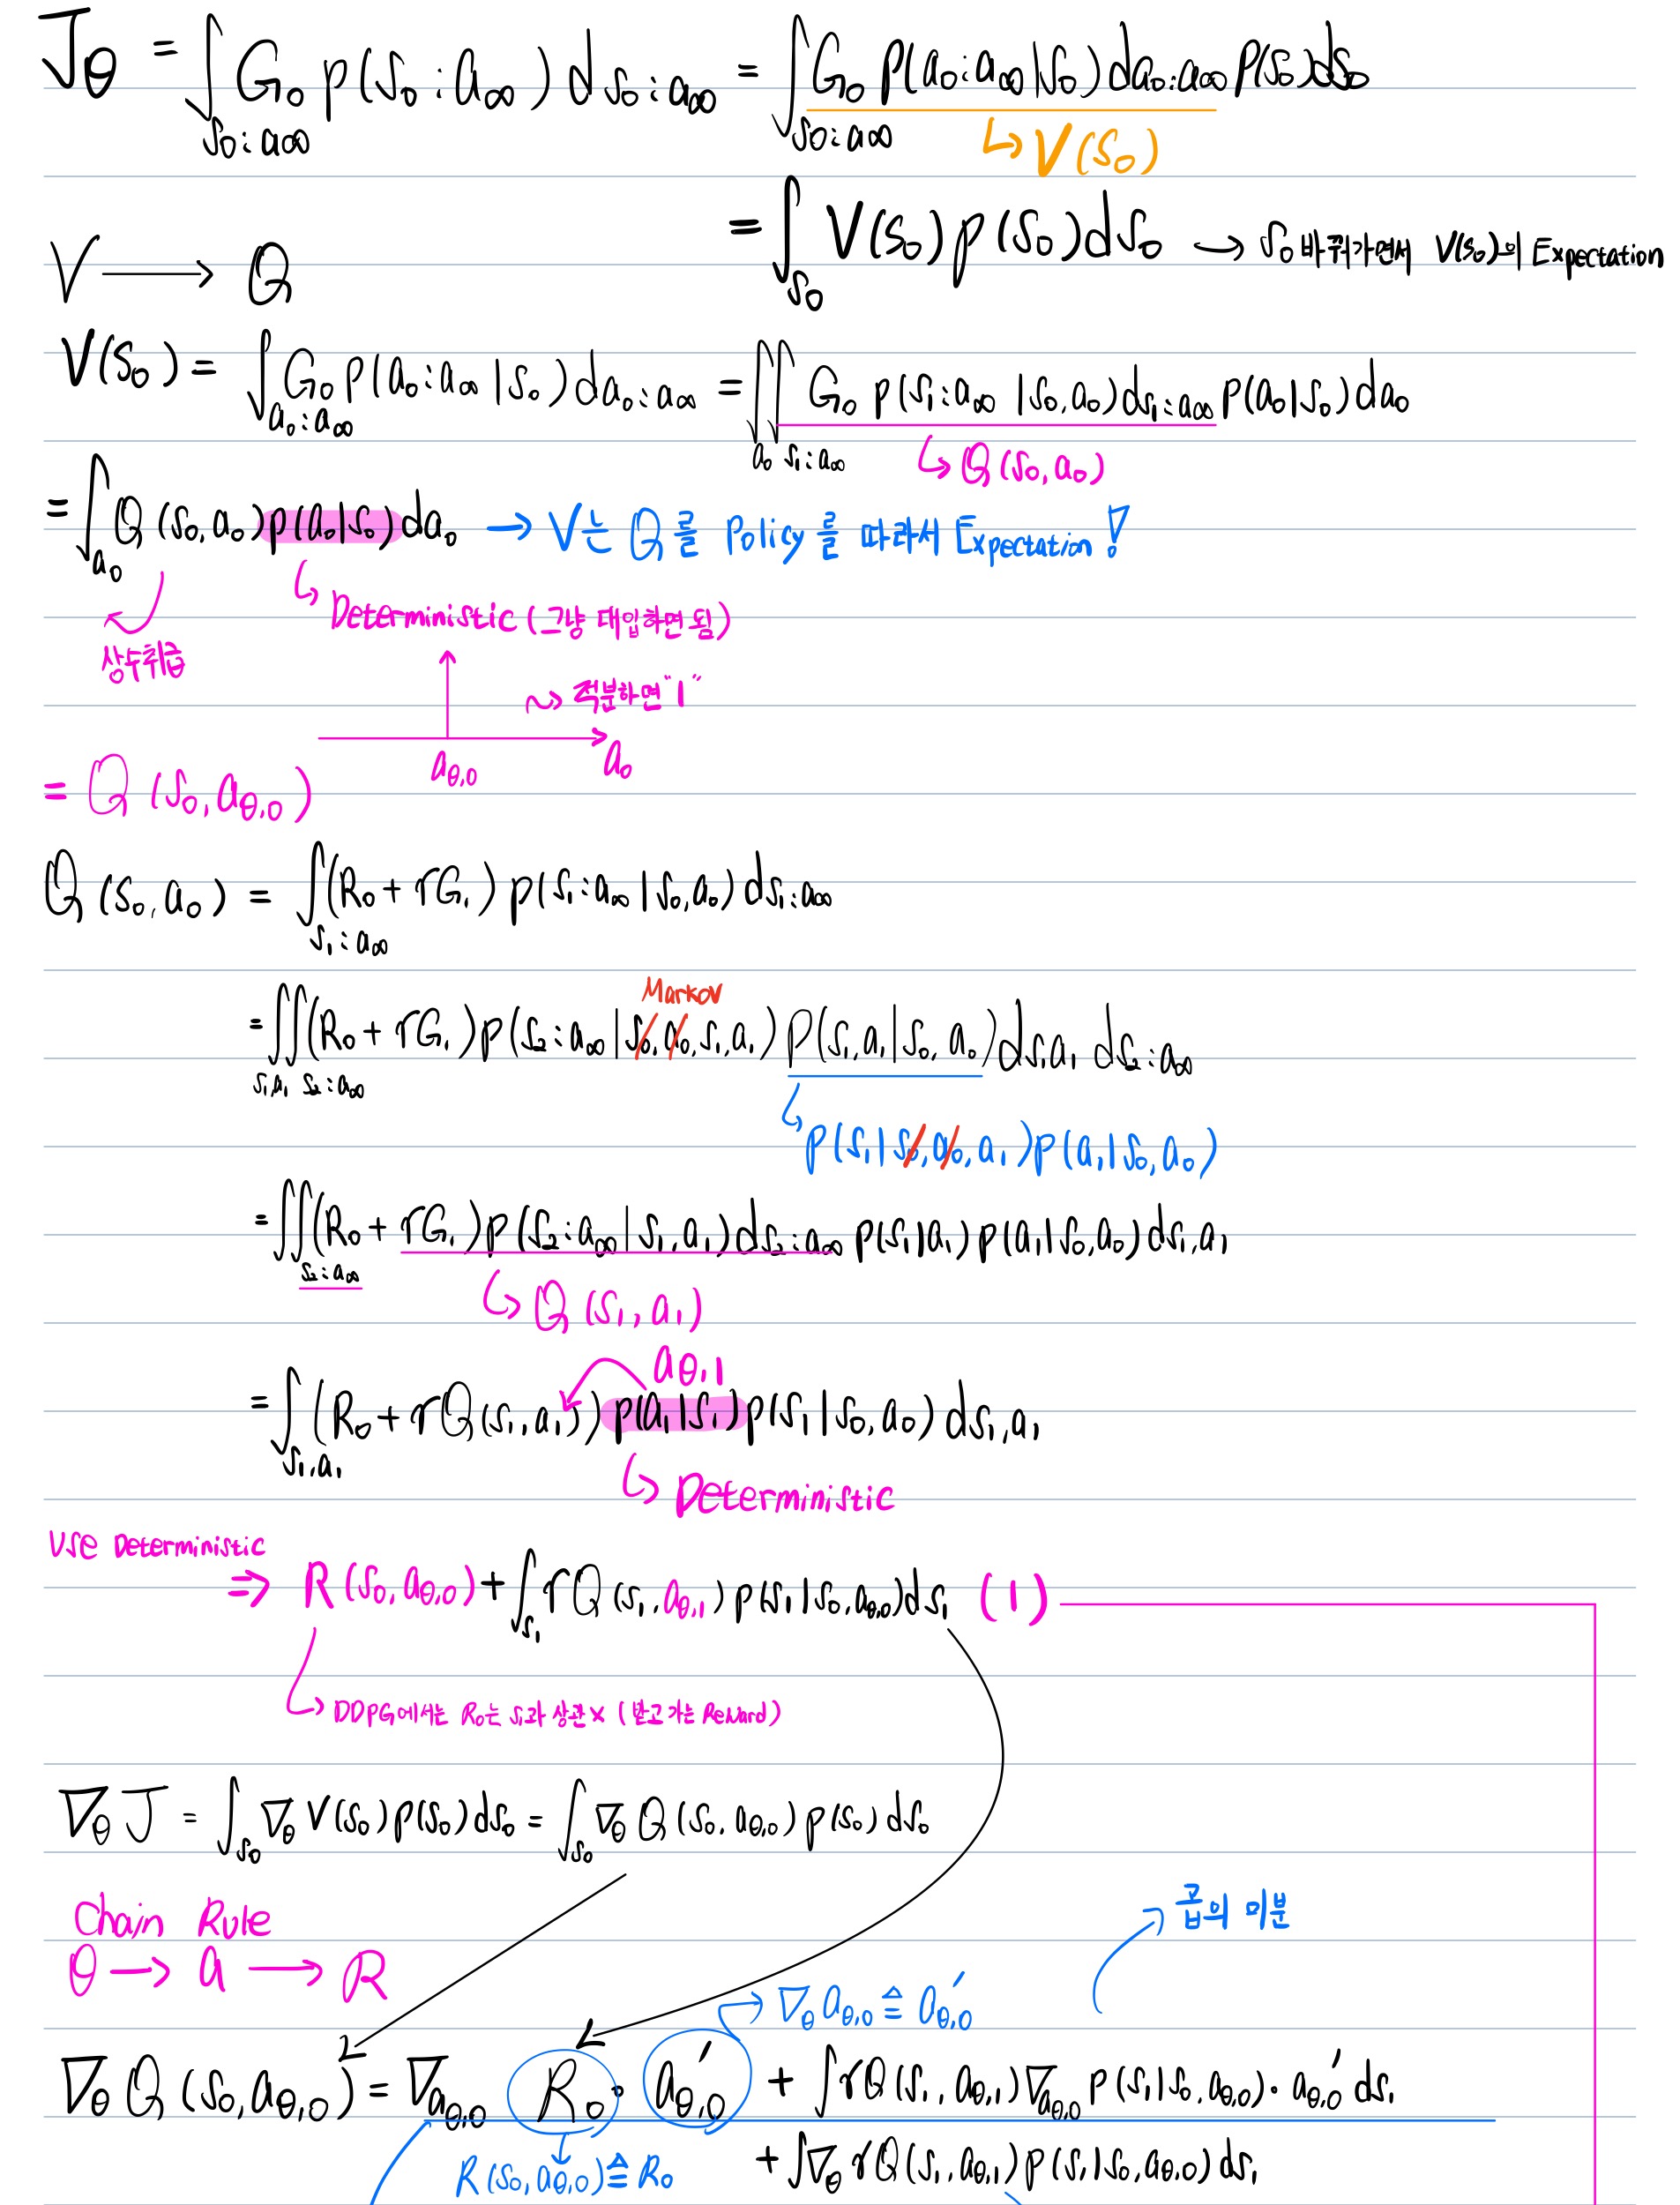 J_θ = ∫_{S₀:a∞} G₀ p(S₀:a∞) dS₀:a∞ = ∫_{S₀:a∞} G₀ p(a₀:a∞|S₀) da₀:a∞ p(S₀)dS₀
↳ V(S₀)
= ∫_{S₀} V(S₀) p(S₀) dS₀ → S₀ 바꿔가면서 V(S₀)의 Expectation
V → Q
V(S₀) = ∫_{a₀:a∞} G₀ p(a₀:a∞|S₀) da₀:a∞ = ∬_{a₀ S₁:a∞} G₀ p(S₁:a∞|S₀,a₀) dS₁:a∞ p(a₀|S₀) da₀
↳ Q(S₀,a₀)
= ∫_{a₀} Q(S₀,a₀) p(a₀|S₀) da₀ → V는 Q를 Policy를 따라서 Expectation!
↳ Deterministic (그냥 대입하면 됨)
상수취급
↝ 적분하면 "1"
a_{θ,0} a₀
= Q(S₀,a_{θ,0})
Q(S₀,a₀) = ∫_{S₁:a∞} (R₀ + rG₁) p(S₁:a∞|S₀,a₀) dS₁:a∞
Markov
= ∬_{S₁,a₁ S₂:a∞} (R₀ + rG₁) p(S₂:a∞|S₀,a₀,S₁,a₁) P(S₁,a₁|S₀,a₀) dS₁a₁ dS₂:a∞
↳ p(S₁|S₀,a₀,a₁)p(a₁|S₀,a₀)
= ∬_{S₂:a∞} (R₀ + rG₁) p(S₂:a∞|S₁,a₁) dS₂:a∞ p(S₁|a₁) p(a₁|S₀,a₀) dS₁,a₁
↳ Q(S₁,a₁)
a_{θ,1}
= ∫_{S₁,a₁} (R₀ + rQ(S₁,a₁)) p(a₁|S₁) p(S₁|S₀,a₀) dS₁,a₁
↳ Deterministic
Use Deterministic
⇒ R(S₀,a_{θ,0}) + ∫_{S₁} rQ(S₁,a_{θ,1}) p(S₁|S₀,a_{θ,0}) dS₁ (1)
↳ DDPG에서는 R₀는 S₁과 상관 X (받고 가는 Reward)
∇_θ J = ∫_{S₀} ∇_θ V(S₀) p(S₀) dS₀ = ∫_{S₀} ∇_θ Q(S₀,a_{θ,0}) p(S₀) dS₀
Chain Rule
곱의 미분
θ → a → R
∇_θ a_{θ,0} ≜ a′_{θ,0}
∇_θ Q(S₀,a_{θ,0}) = ∇_{a_{θ,0}} R₀ · a′_{θ,0} + ∫ rQ(S₁,a_{θ,1}) ∇_{a_{θ,0}} p(S₁|S₀,a_{θ,0}) · a′_{θ,0} dS₁
R(S₀,a_{θ,0}) ≜ R₀ + ∫ ∇_θ rQ(S₁,a_{θ,1}) p(S₁|S₀,a_{θ,0}) dS₁